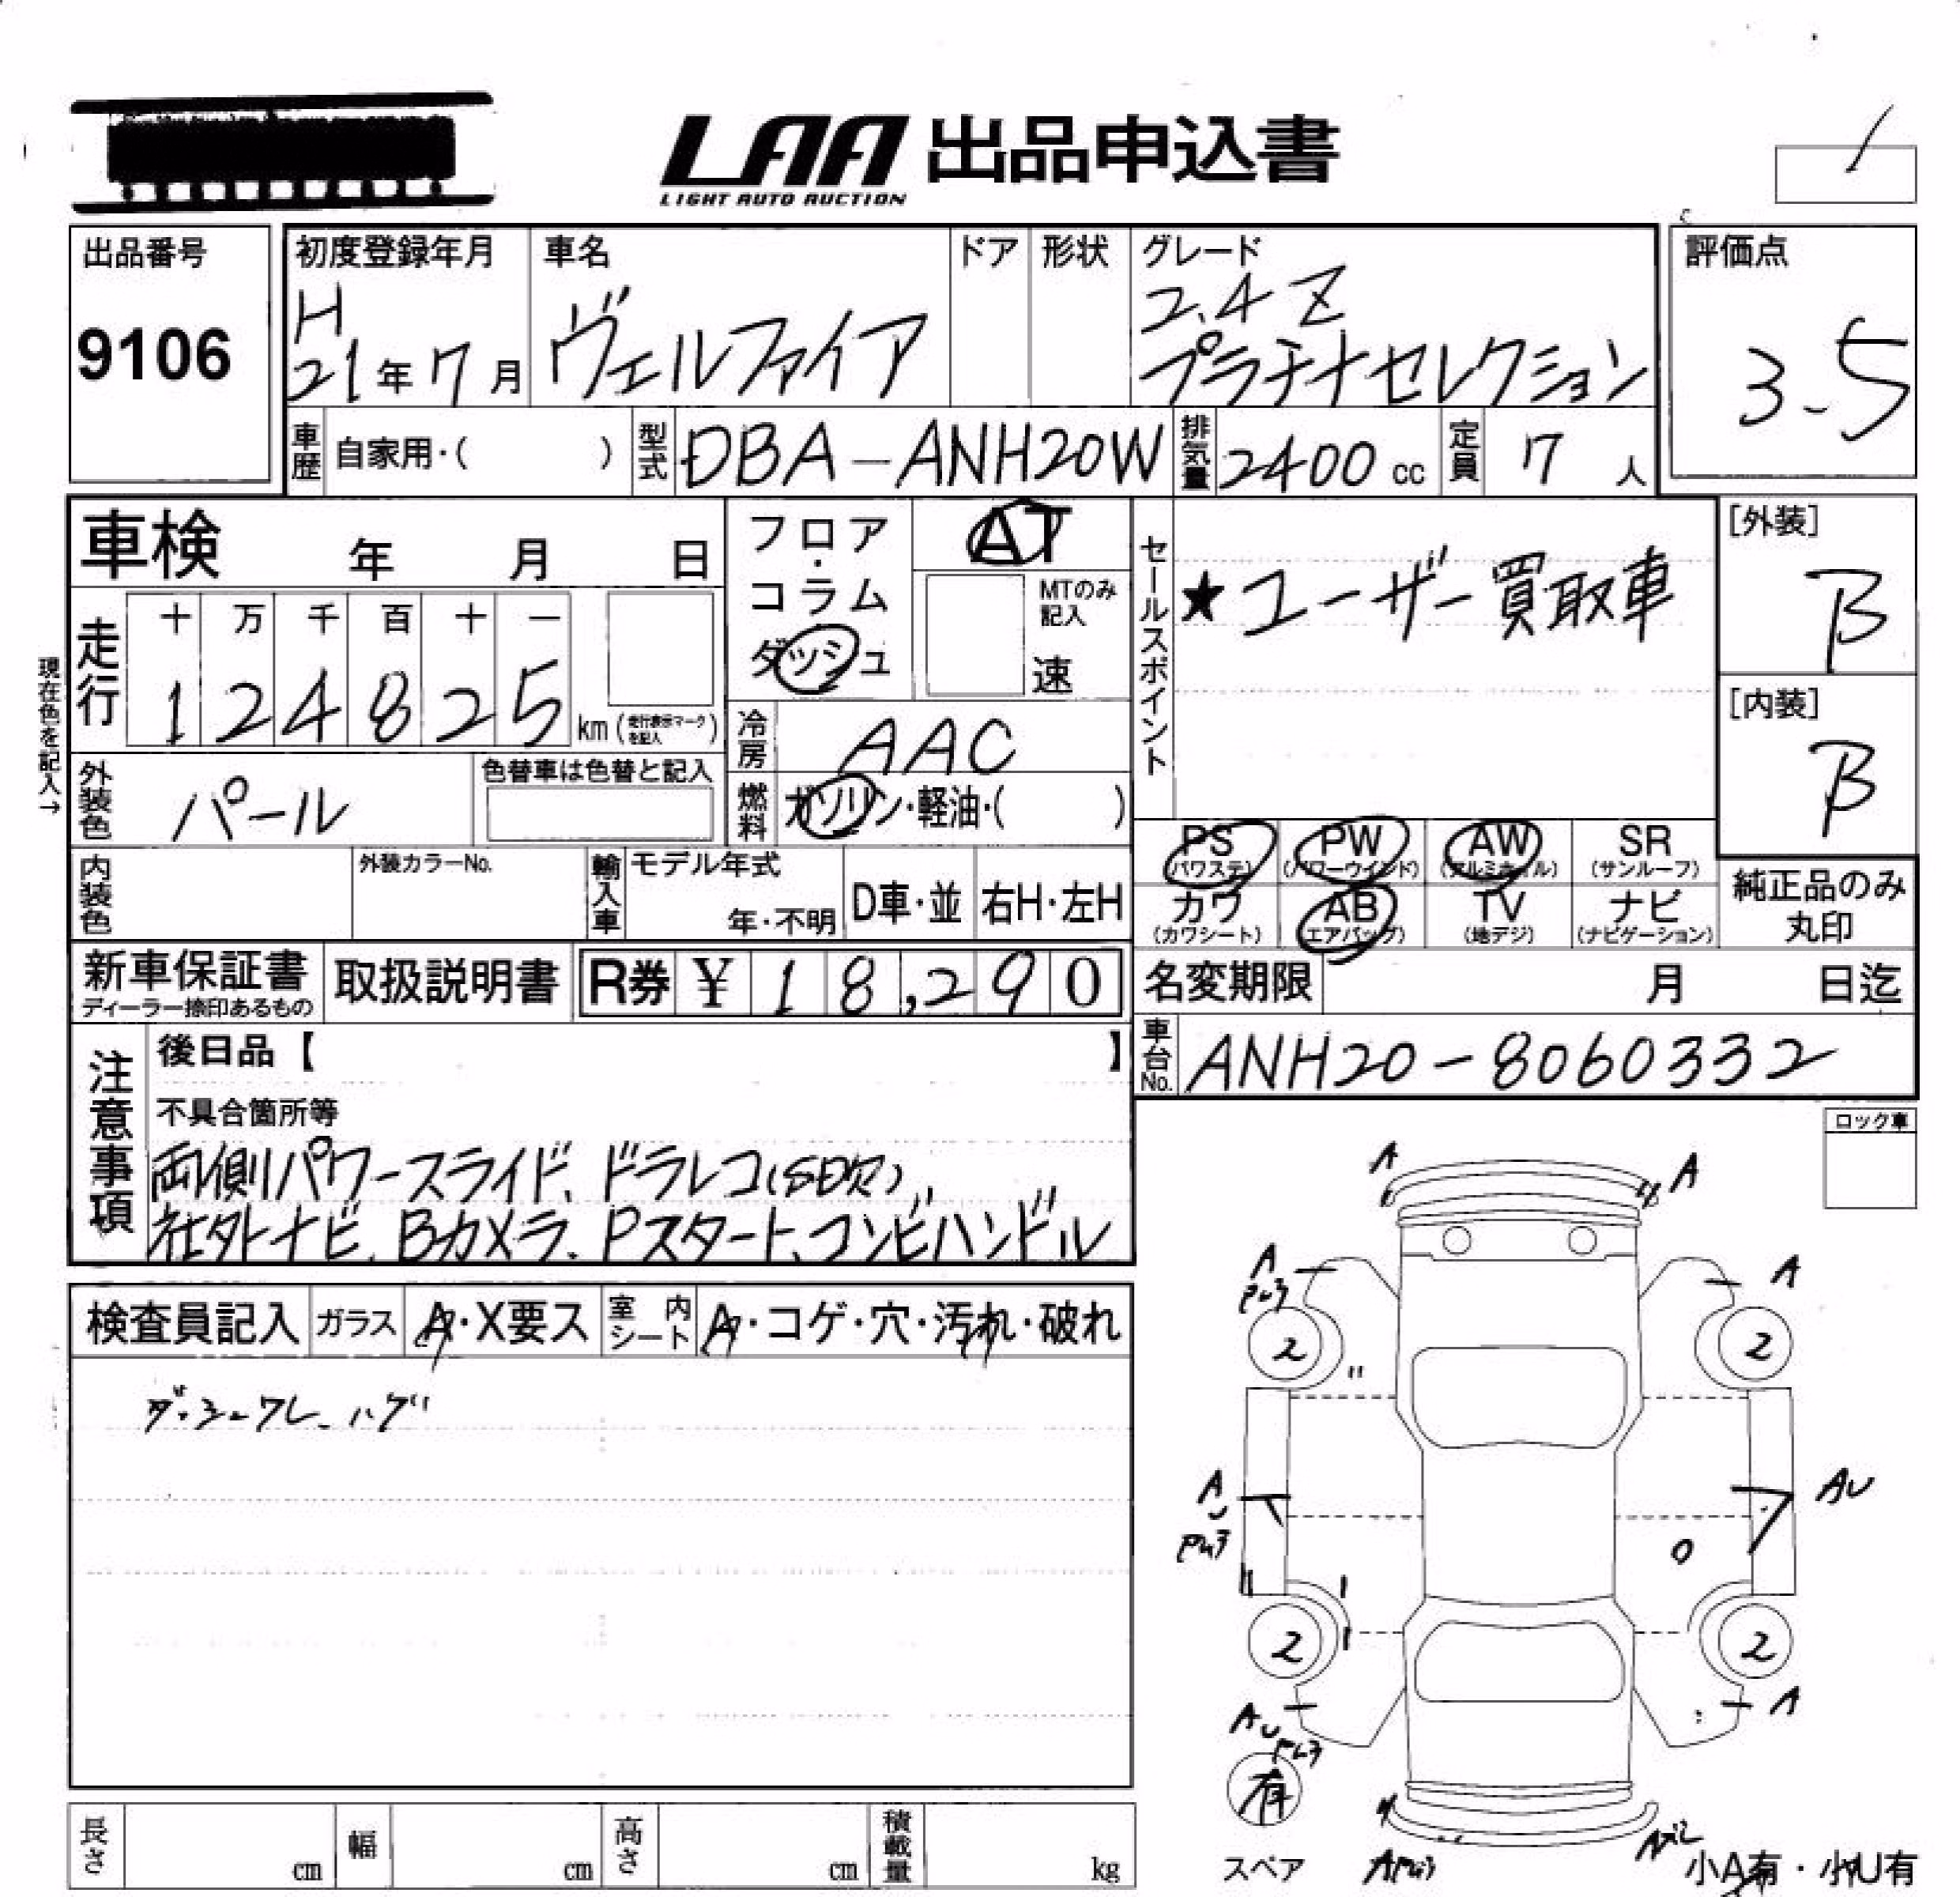 LAA 出品申込書
LIGHT AUTO AUCTION
出品番号
9106
初度登録年月
H
21年7月
車名
ヴェルファイア
ドア
形状
グレード
2.4 Z
プラチナセレクション
評価点
3.5
車歴
自家用・( )
型式
DBA-ANH20W
排気量
2400 cc
定員
7 人
車検 年 月 日
フロア・コラム
ダッシュ
AT
MTのみ記入
速
セールスポイント
★ユーザー買取車
[外装]
B
[内装]
B
現在色を記入→
走行
十 万 千 百 十 一
1 2 4 8 2 5
km (走行表示マークを記入)
冷房
AAC
外装色
パール
色替車は色替と記入
燃料
ガソリン・軽油・( )
PS
(パワステ)
PW
(パワーウインド)
AW
(アルミホイル)
SR
(サンルーフ)
カワ
(カワシート)
AB
(エアバッグ)
TV
(地デジ)
ナビ
(ナビゲーション)
純正品のみ
丸印
内装色
外装カラーNo.
輸入車
モデル年式
年・不明
D車・並
右H・左H
新車保証書
ディーラー捺印あるもの
取扱説明書
R券 ¥ 18,290
名変期限 月 日迄
車台No.
ANH20-8060332
注意事項
後日品【 】
不具合箇所等
両側パワースライド、ドラレコ(SD欠)、
社外ナビ、Bカメラ、Pスタート、コンビハンドル
ロック車
検査員記入
ガラス
A・X要ス
室内シート
A・コゲ・穴・汚れ・破れ
A
A
A
A
2
2
A
AU
2
2
AU
A
有
スペア
小A有・小U有
長さ cm
幅 cm
高さ cm
積載量 kg